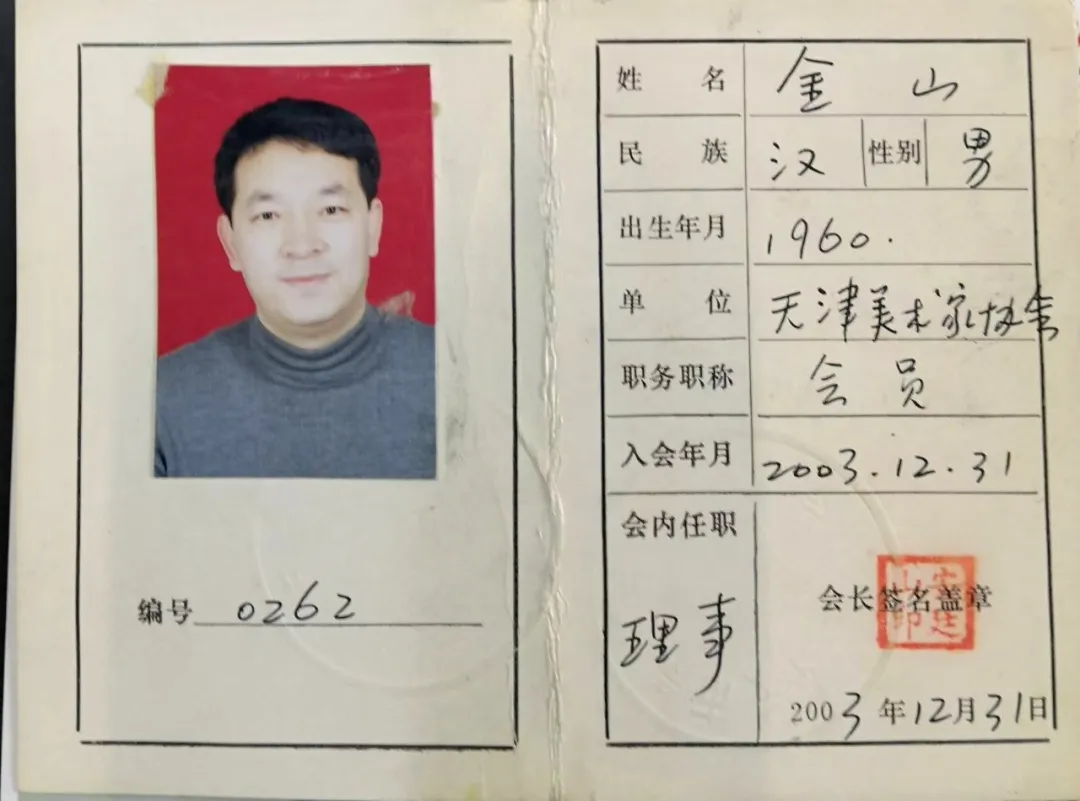 编号 0262
姓名 金山
民族 汉 性别 男
出生年月 1960.
单位 天津美术家协会
职务职称 会员
入会年月 2003.12.31
会内任职
理事
会长签名盖章
2003年12月31日